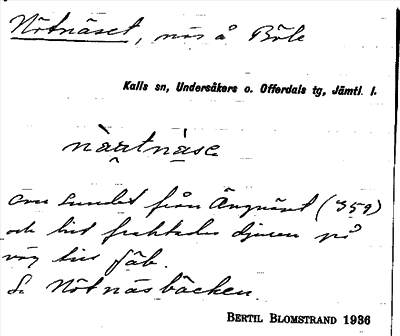 Nötnäset, näs å Böle
Kalls sn, Undersåkers o. Offerdals tg, Jämtl. l.
nàatnàse
Om sundet från Ängnäset (359)
och hit fraktades djuren på
väg till fäb.
Se Nötnäsbäcken.
BERTIL BLOMSTRAND 1936